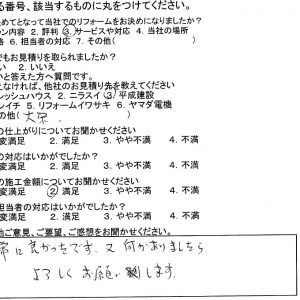 る番号、該当するものに丸をつけてください。
めてとなって当社でのリフォームをお決めになりましたか?
ン内容 2. 評判 ③. サービスや対応 4. 当社の場所
格 6. 担当者の対応 7. その他(
でもお見積りを取られましたか?
い 2. いいえ
いと答えた方へ質問です。
えなければ、他のお見積り先を教えてください
レッシュハウス 2. ニラスイ ③. 平成建設
レイチ 5. リフォームイワサキ 6. ヤマダ電機
の他(大京.
の仕上がりについてお聞かせください
変満足 2. 満足 3. やや不満 4. 不満
の対応はいかがでしたか?
変満足 2. 満足 3. やや不満 4. 不満
の施工金額についてお聞かせください
変満足 ② 満足 3. やや不満 4. 不満
担当者の対応はいかがでしたか?
変満足 2. 満足 3. やや不満 4. 不満
他ご意見、ご要望、ご感想をお聞かせください。
常に良かったです。又何かありましたら
よろしくお願い致します.